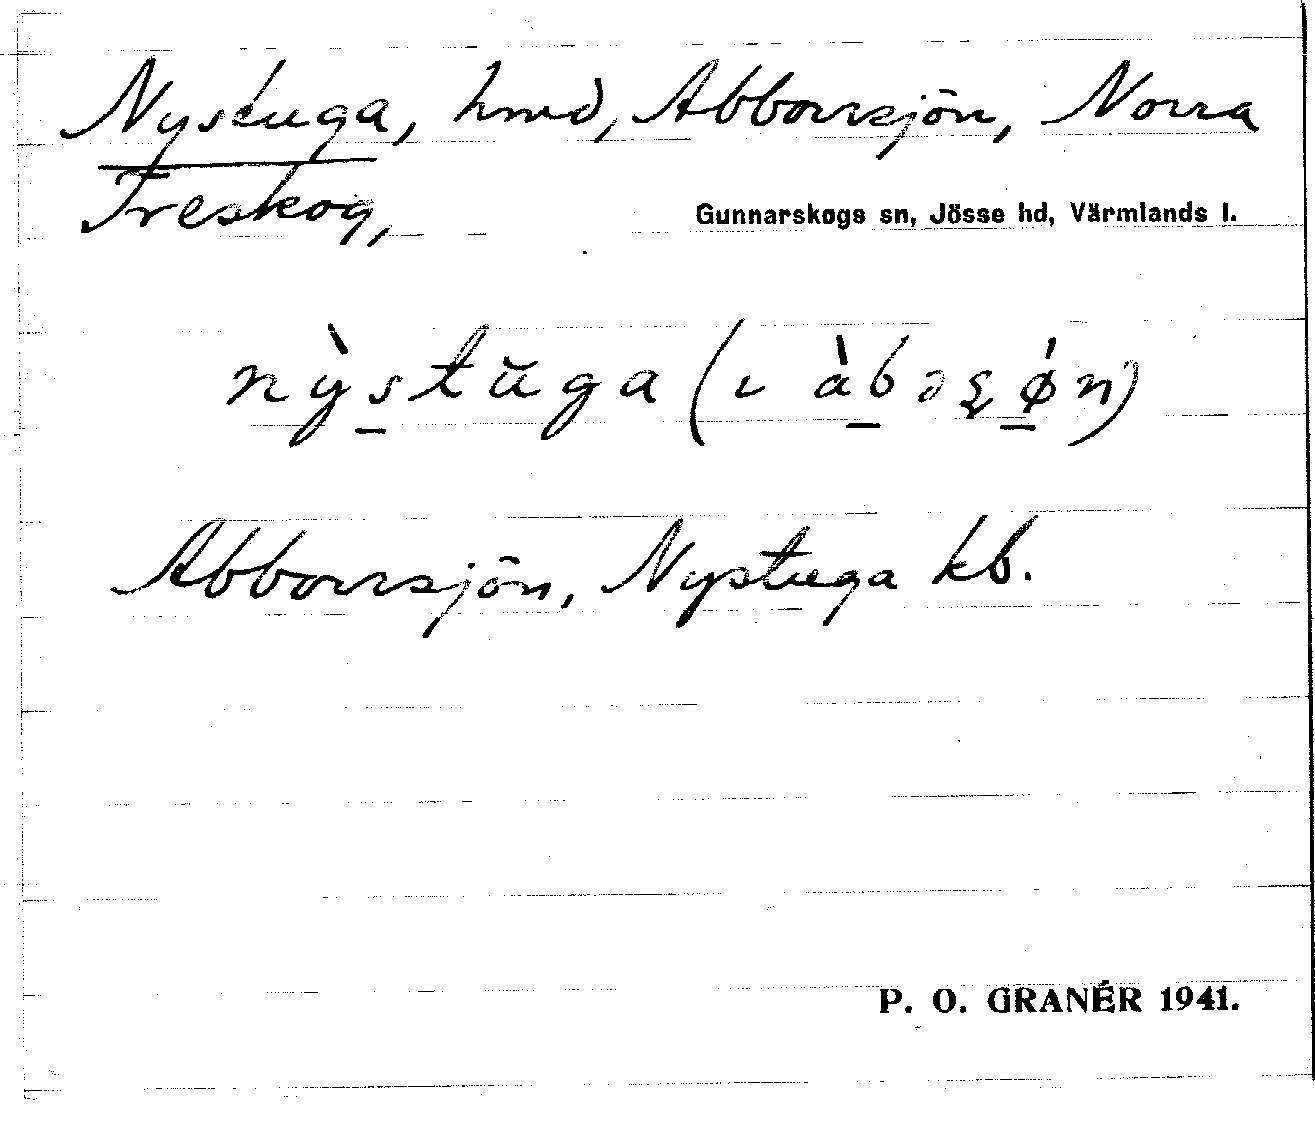 Nystuga, hmd, Abborrsjön, Norra
Treskog,
Gunnarskogs sn, Jösse hd, Värmlands l.
nỳs̲tŭga (ı àb̲əʂǿ̲n)
Abborrsjön, Nystuga kb.
P. O. GRANÉR 1941.